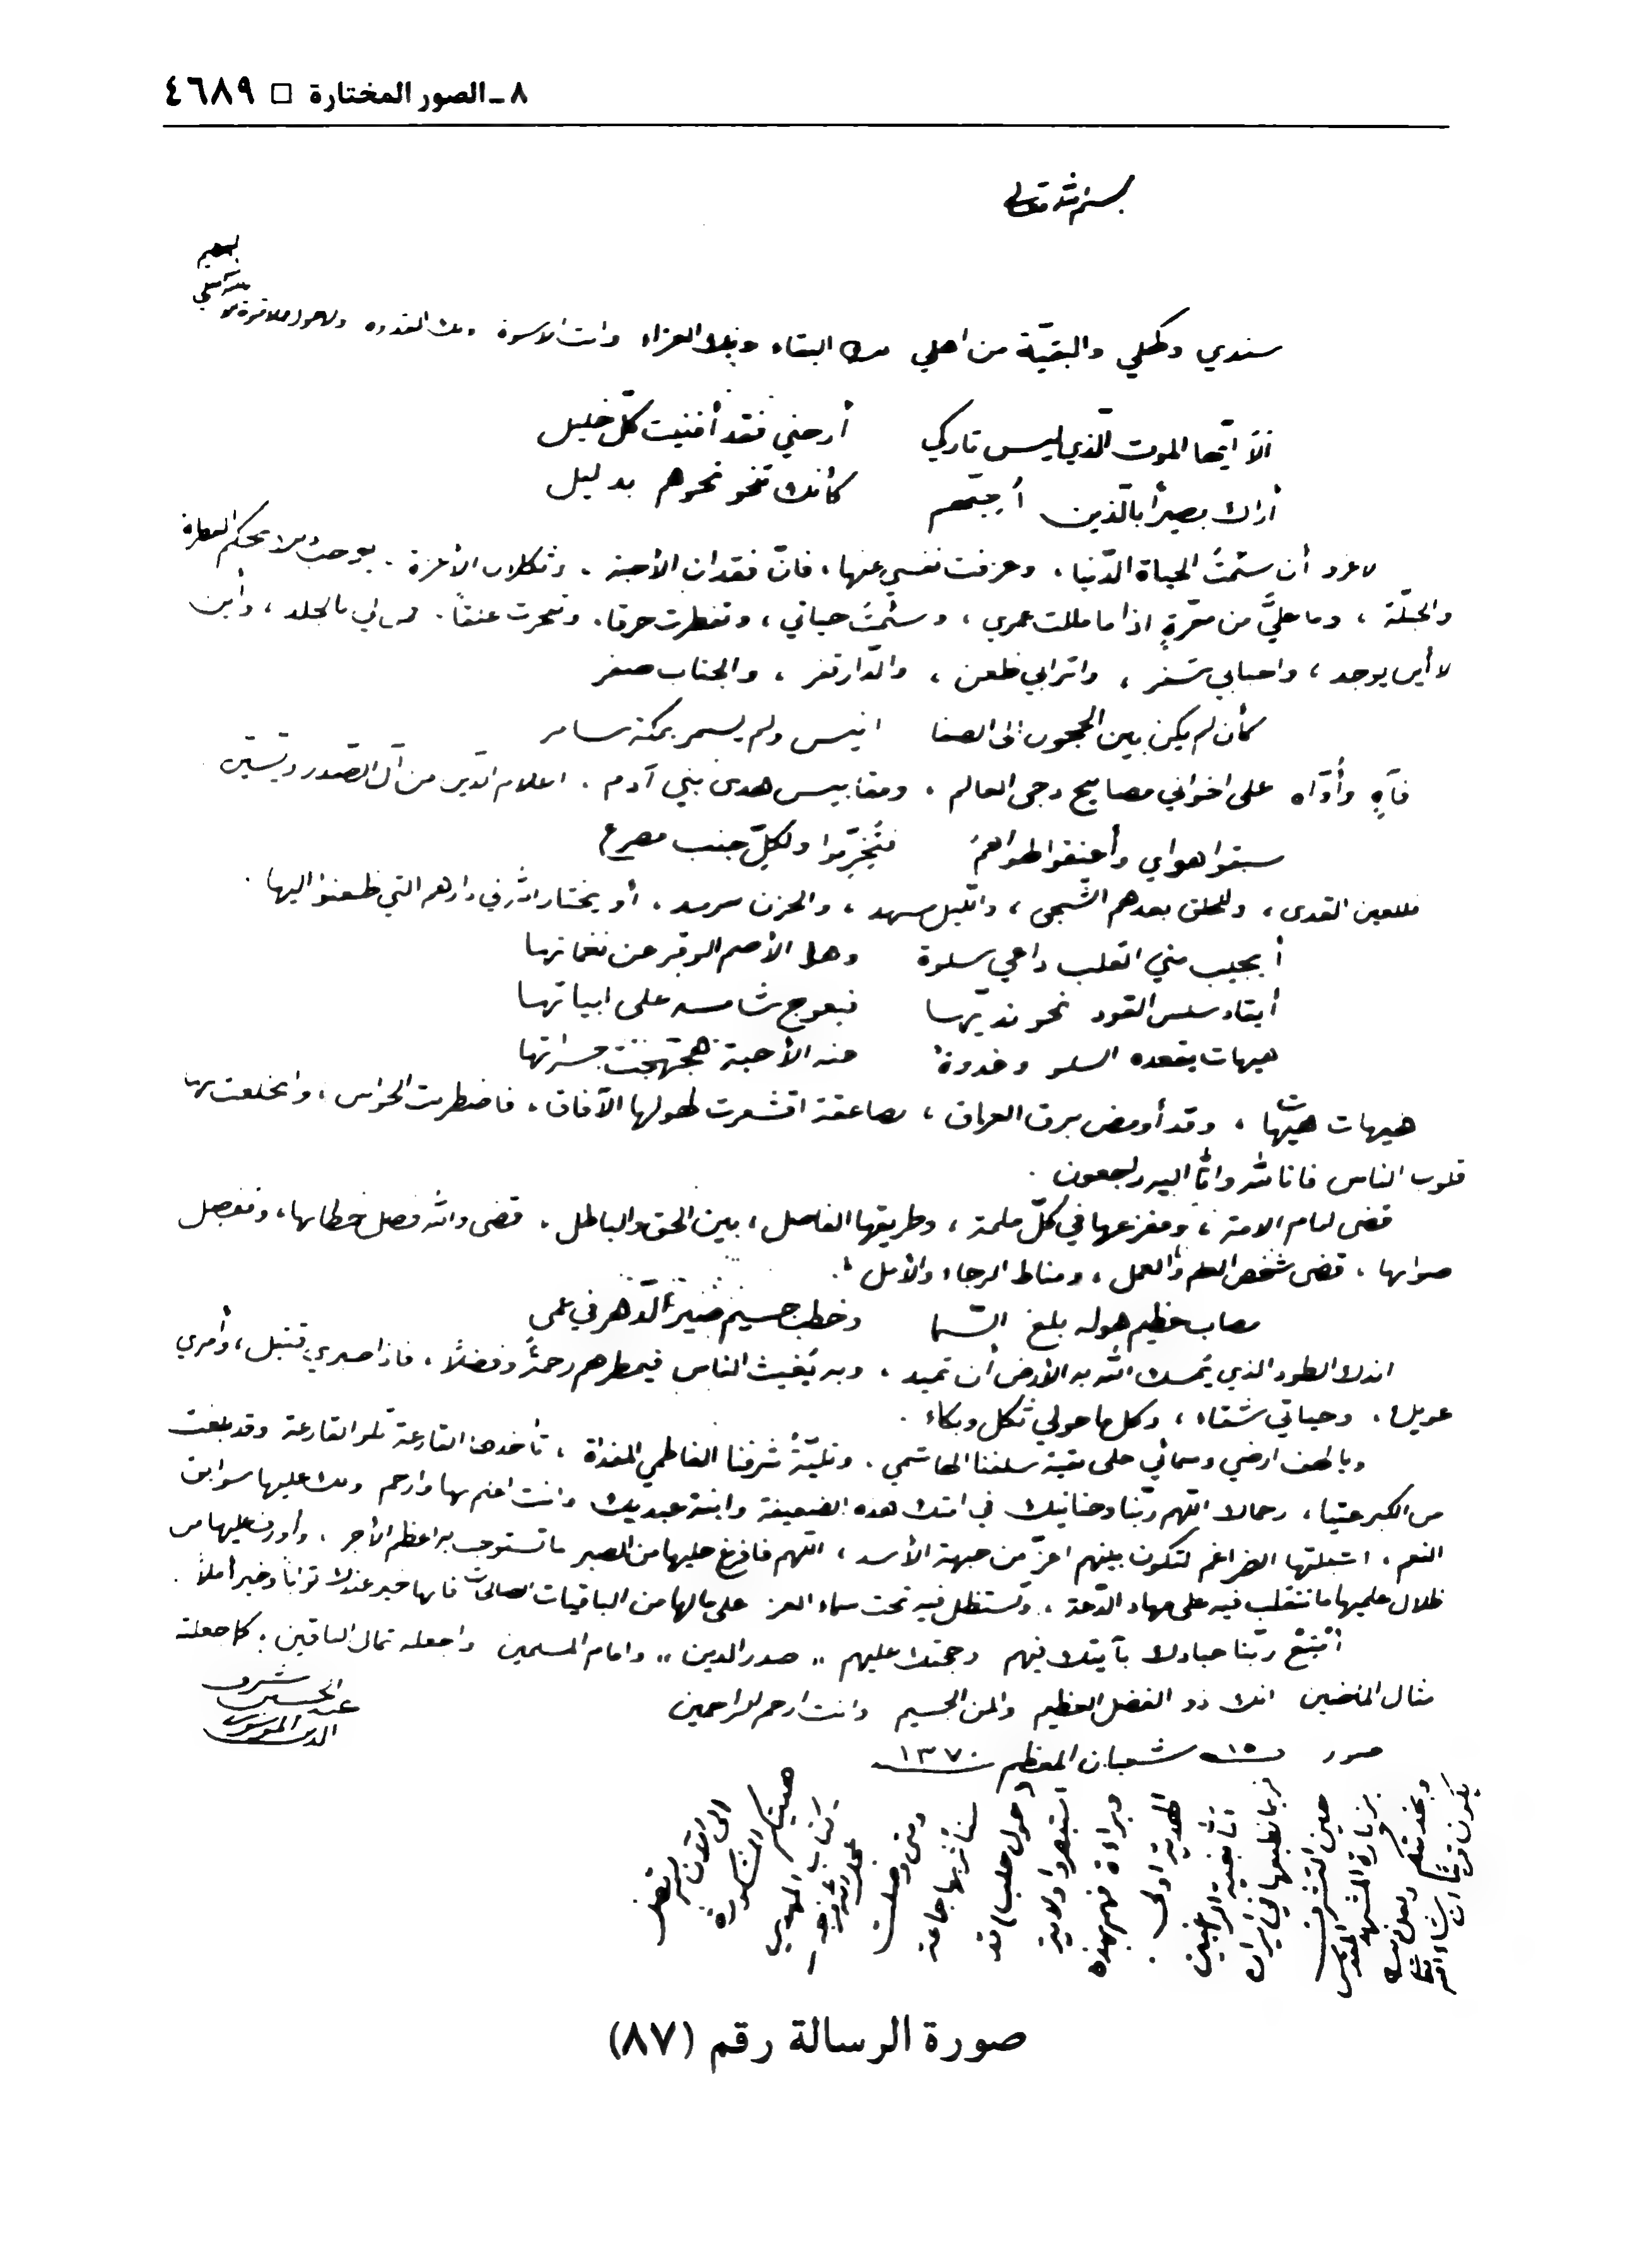 ٨ ـ الصور المختارة □ ٤٦٨٩
بسم الله تعالى
سندي وكهلي والبقيّة من اهلي لك البقاء وبك العزاء وانت الاسوة وبك القدوة ولا حول ولا قوة الا
بالله العلي
العظيم
ألا أيّها الموت الّذي ليس تاركي أرحني فقد أفنيت كلّ خليل
أراك بصيراً بالّذين أحبّهم كأنك تنحو نحوهم بدليل
لا غرو أن سئمتُ الحياة الدّنيا، وعزفت نفسي عنها، فانّ فقدان الأحبة، وثكلان الأعزة، يوجب بحكم الفطرة
والجبلّة، وما عليَّ من معرّةٍ اذا ما مللت عمري، وسئمتُ حياتي، وتفطرت حرقا، عنقاً. من لي بالجلد، وأين
لا أين يوجد، واحبابي سفر، واترابي ظعن، والدّار قفر، والجناب صفر
كأن لم يكن بين الحجون الى الصفا انيس ولم يسمر بمكة سامر
فآهٍ وأوّاه على اخواني مصابيح دجى العالم، ومقابيس هدى بني آدم. اعلام الدّين من آل الصّدر ويٰسين
سبقوا هواي وأعنقوا لهواهمُ فتُخُرِّموا ولكلّ جنب مصرع
فللعين القذى، وللحلق بعدهم الشّجى، والليل مسهد، والحزن سرمد، أو يختار الله لي دارهم التي ظعنوا اليها.
أيجيب مني القلب داعي سلوة وهو الأصم الوقر عن نغماتها
أيقاد سلس القود نحو نديّها فيعوج شامسه على ابياتها
هيهات يقعده السلو وغدوة منه الأحبة هجهجت
هيهات هيهات، وقد أومض برق العراق، بصاعقة اقشعرت لهولها الآفاق، فاضطربت الحواس، وانخلعت بها
قلوب الناس فانا لله وانّا اليه راجعون.
قضى امام الامة، ومفزعها في كلّ ملمة، وطريقها الفاصل، بين الحق والباطل، قضى والله فصل خطابها، ومفصل
صوابها، قضى شخص العلم والعمل، ومناط الرجاء والأمل.
مصاب عظيم هوله بلغ السّما وخطب جسيم صيّر الدّهر في عمى
اندك الطود الذي يُمسك الله به الأرض أن تميد، وبه يُغيث الناس فيمطرهم رحمةً وفضلًا، فاذا صبري قتيل، وأمري
عويل، وحياتي شقاء، وكل ما حولي ثكل وبكاء.
ويا لهف ارضي وسمائي على بقية سلفنا الهاشمي، وتليّةُ شرفنا الفاطمي المفداة، تأخذها القارعة تلو القارعة وقد بلغت
من الكبر عتيا، رحماك اللّهم ربّنا وحنانيك في امتك هذه الضعيفة وابنة عبديك وانت اعلم بها وارحم ولك عليها سوابق
النعم، لتكون بينهم اعزّ من جبهة الأسد، اللّهم فافرغ عليها من الصبر ما تستوجب به اعظم الأجر، من
ظلال ما تتقلب فيه على مهاد الدّعة، وتستظل فيه تحت سماء العز على مالها من الباقيات الصالحات فانها خير عندك ثواباً وخير أملاً.
أمتع ربّنا عبادك بآيتك فيهم وحجتك عليهم ,, صدر الدين ,, وامام المسلمين واجعله ثمال الباقين، كما جعلته
مثال الماضين انك ذو الفضل العظيم والمن الجسيم وانت ارحم الراحمين
عبد الحسين شرف
الدين الموسوي
صور ١٥ شعبان المعظم ١٣٧٠
الى الآن لم تصل
هديتكم المشكورة
كتاب المهدي
ومتى وصلت
سنأثر بها جماعة
حول حلب قد
استبصروا ولاية
وبراءة فهم بهذه
الهدية اولى.
أمّا بقية الراغبين
فربما نطبعها في ايران
حين التشرف
بزيارة المشهد المقدس
وبخدمتكم ولعل ذلك
يكون قريبا ان شاء الله
صورة الرسالة رقم (٨٧)